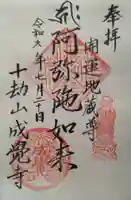 奉拝
開運地蔵尊
阿弥陀如来
令和六年七月二十日
十劫山成覺寺